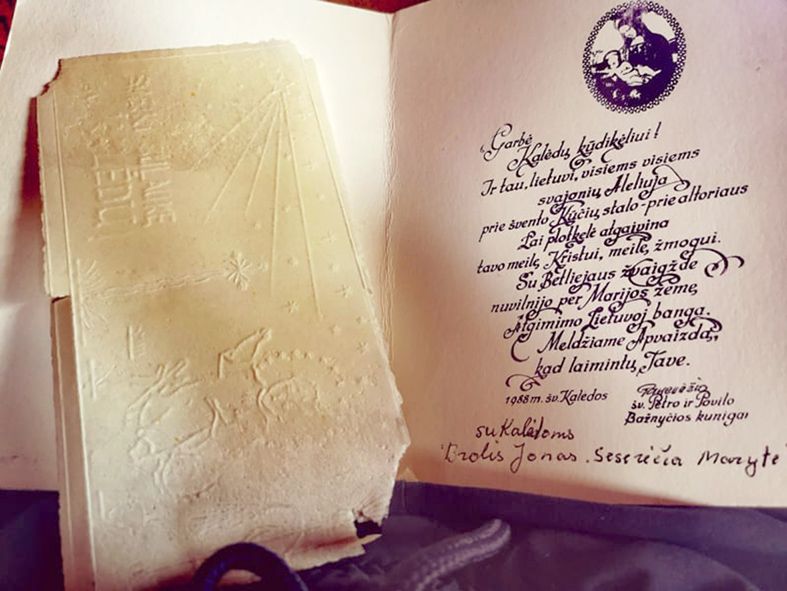 Garbė
Kalėdų kūdikėliui!
Ir tau, lietuvi, visiems visiems
svajonių Aleliuja
prie švento Kūčių stalo-prie altoriaus
Lai plotkelė atgaivina
tavo meilę Kristui, meilę žmogui.
Su Betliejaus žvaigžde
nuvilnijo per Marijos žemę
Atgimimo Lietuvoj banga.
Meldžiame Apvaizdą,
kad laimintų Tave.
1988 m. šv. Kalėdos
Panevėžio
šv. Petro ir Povilo
Bažnyčios kunigai
su Kalėdoms
Brolis Jonas. Seserėčia Marytė